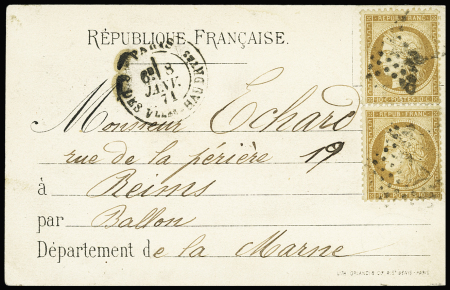 RÉPUBLIQUE FRANÇAISE.
PARIS
8
JANV.
71
REPUB. FRANC.
10 C. POSTES 10 C.
REPUB. FRANC.
Monsieur Echard
rue de la périère 19
à Reims
par Ballon
Département de la Marne